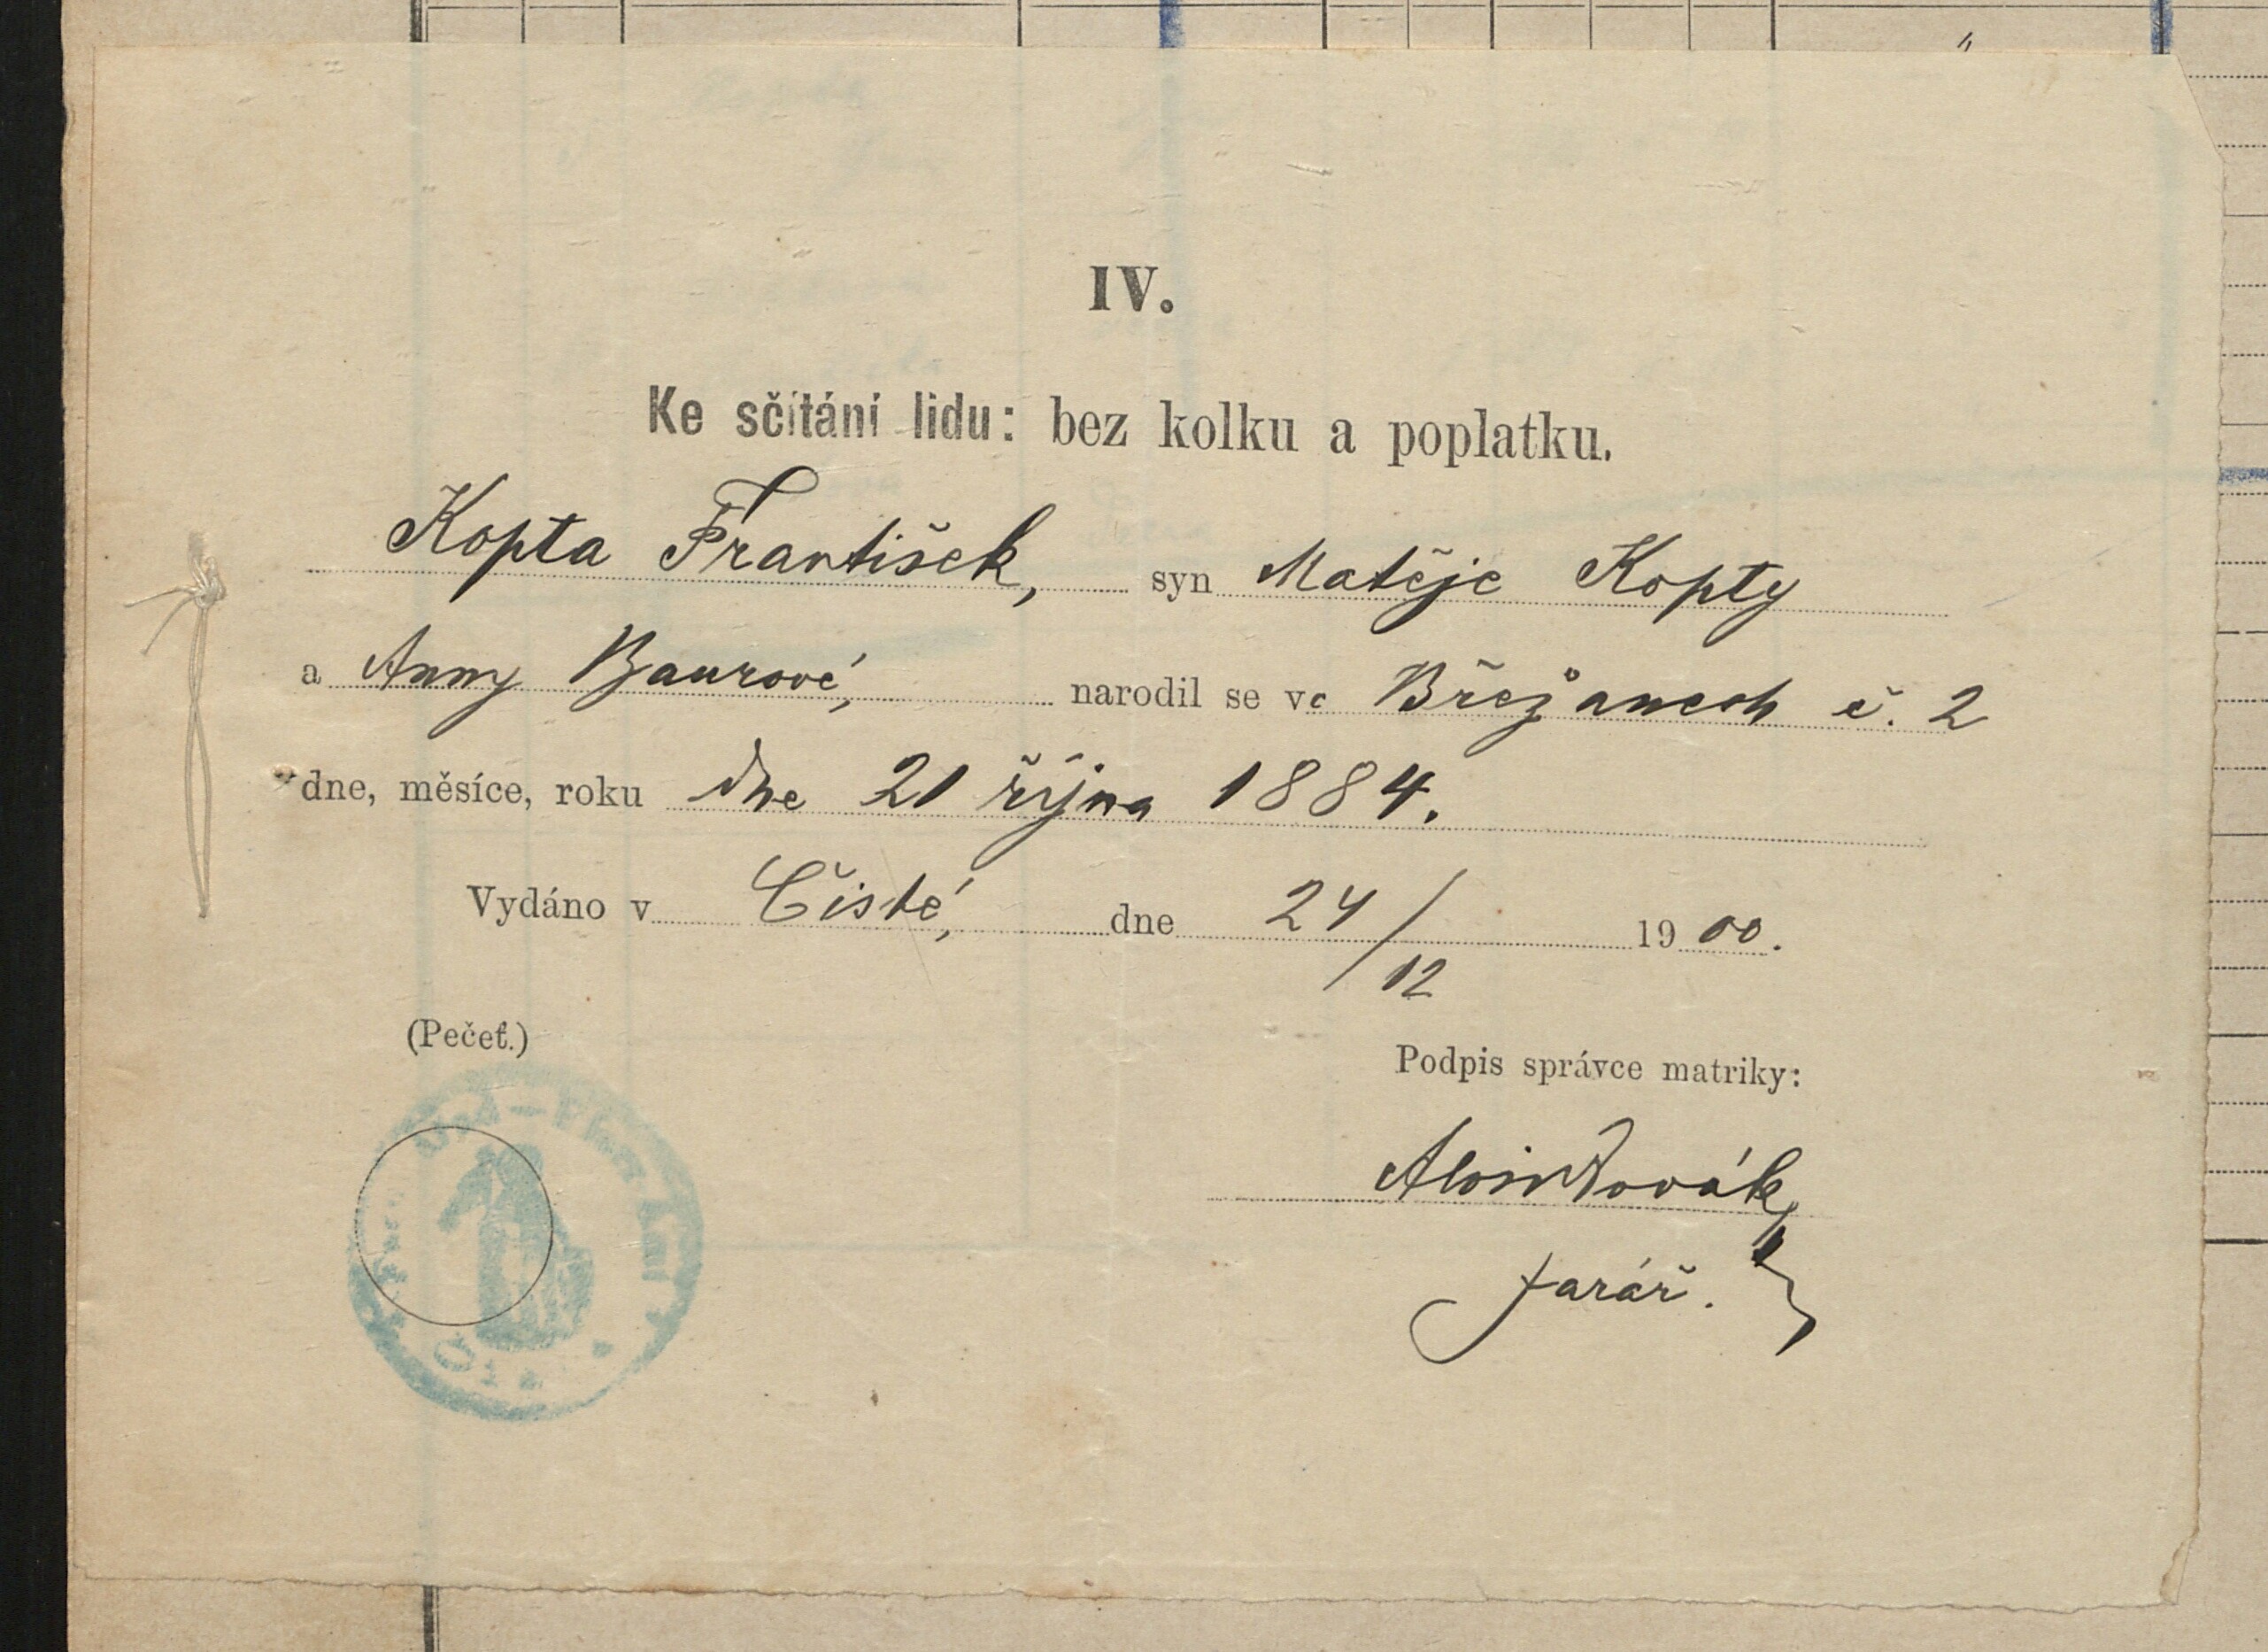 IV.
Ke sčítání lidu: bez kolku a poplatku.
Kopta František, syn Matěje Kopty
a Anny Baurové, narodil se ve Břežanech č. 2
dne, měsíce, roku dne 21 října 1884.
Vydáno v Čisté, dne 24/12 1900.
(Pečeť.)
Podpis správce matriky:
Alois Novák
farář.